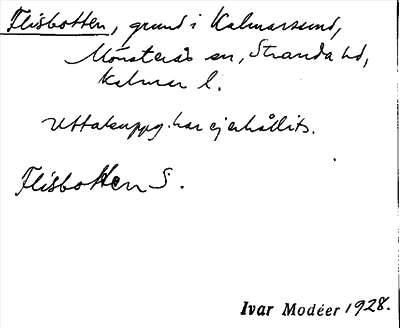 Flisbotten, grund i Kalmarsund,
Mönsterås sn, Stranda hd,
Kalmar l.
Uttalsuppg. har ej erhållits.
Flisbotten S.
Ivar Modéer 1928.